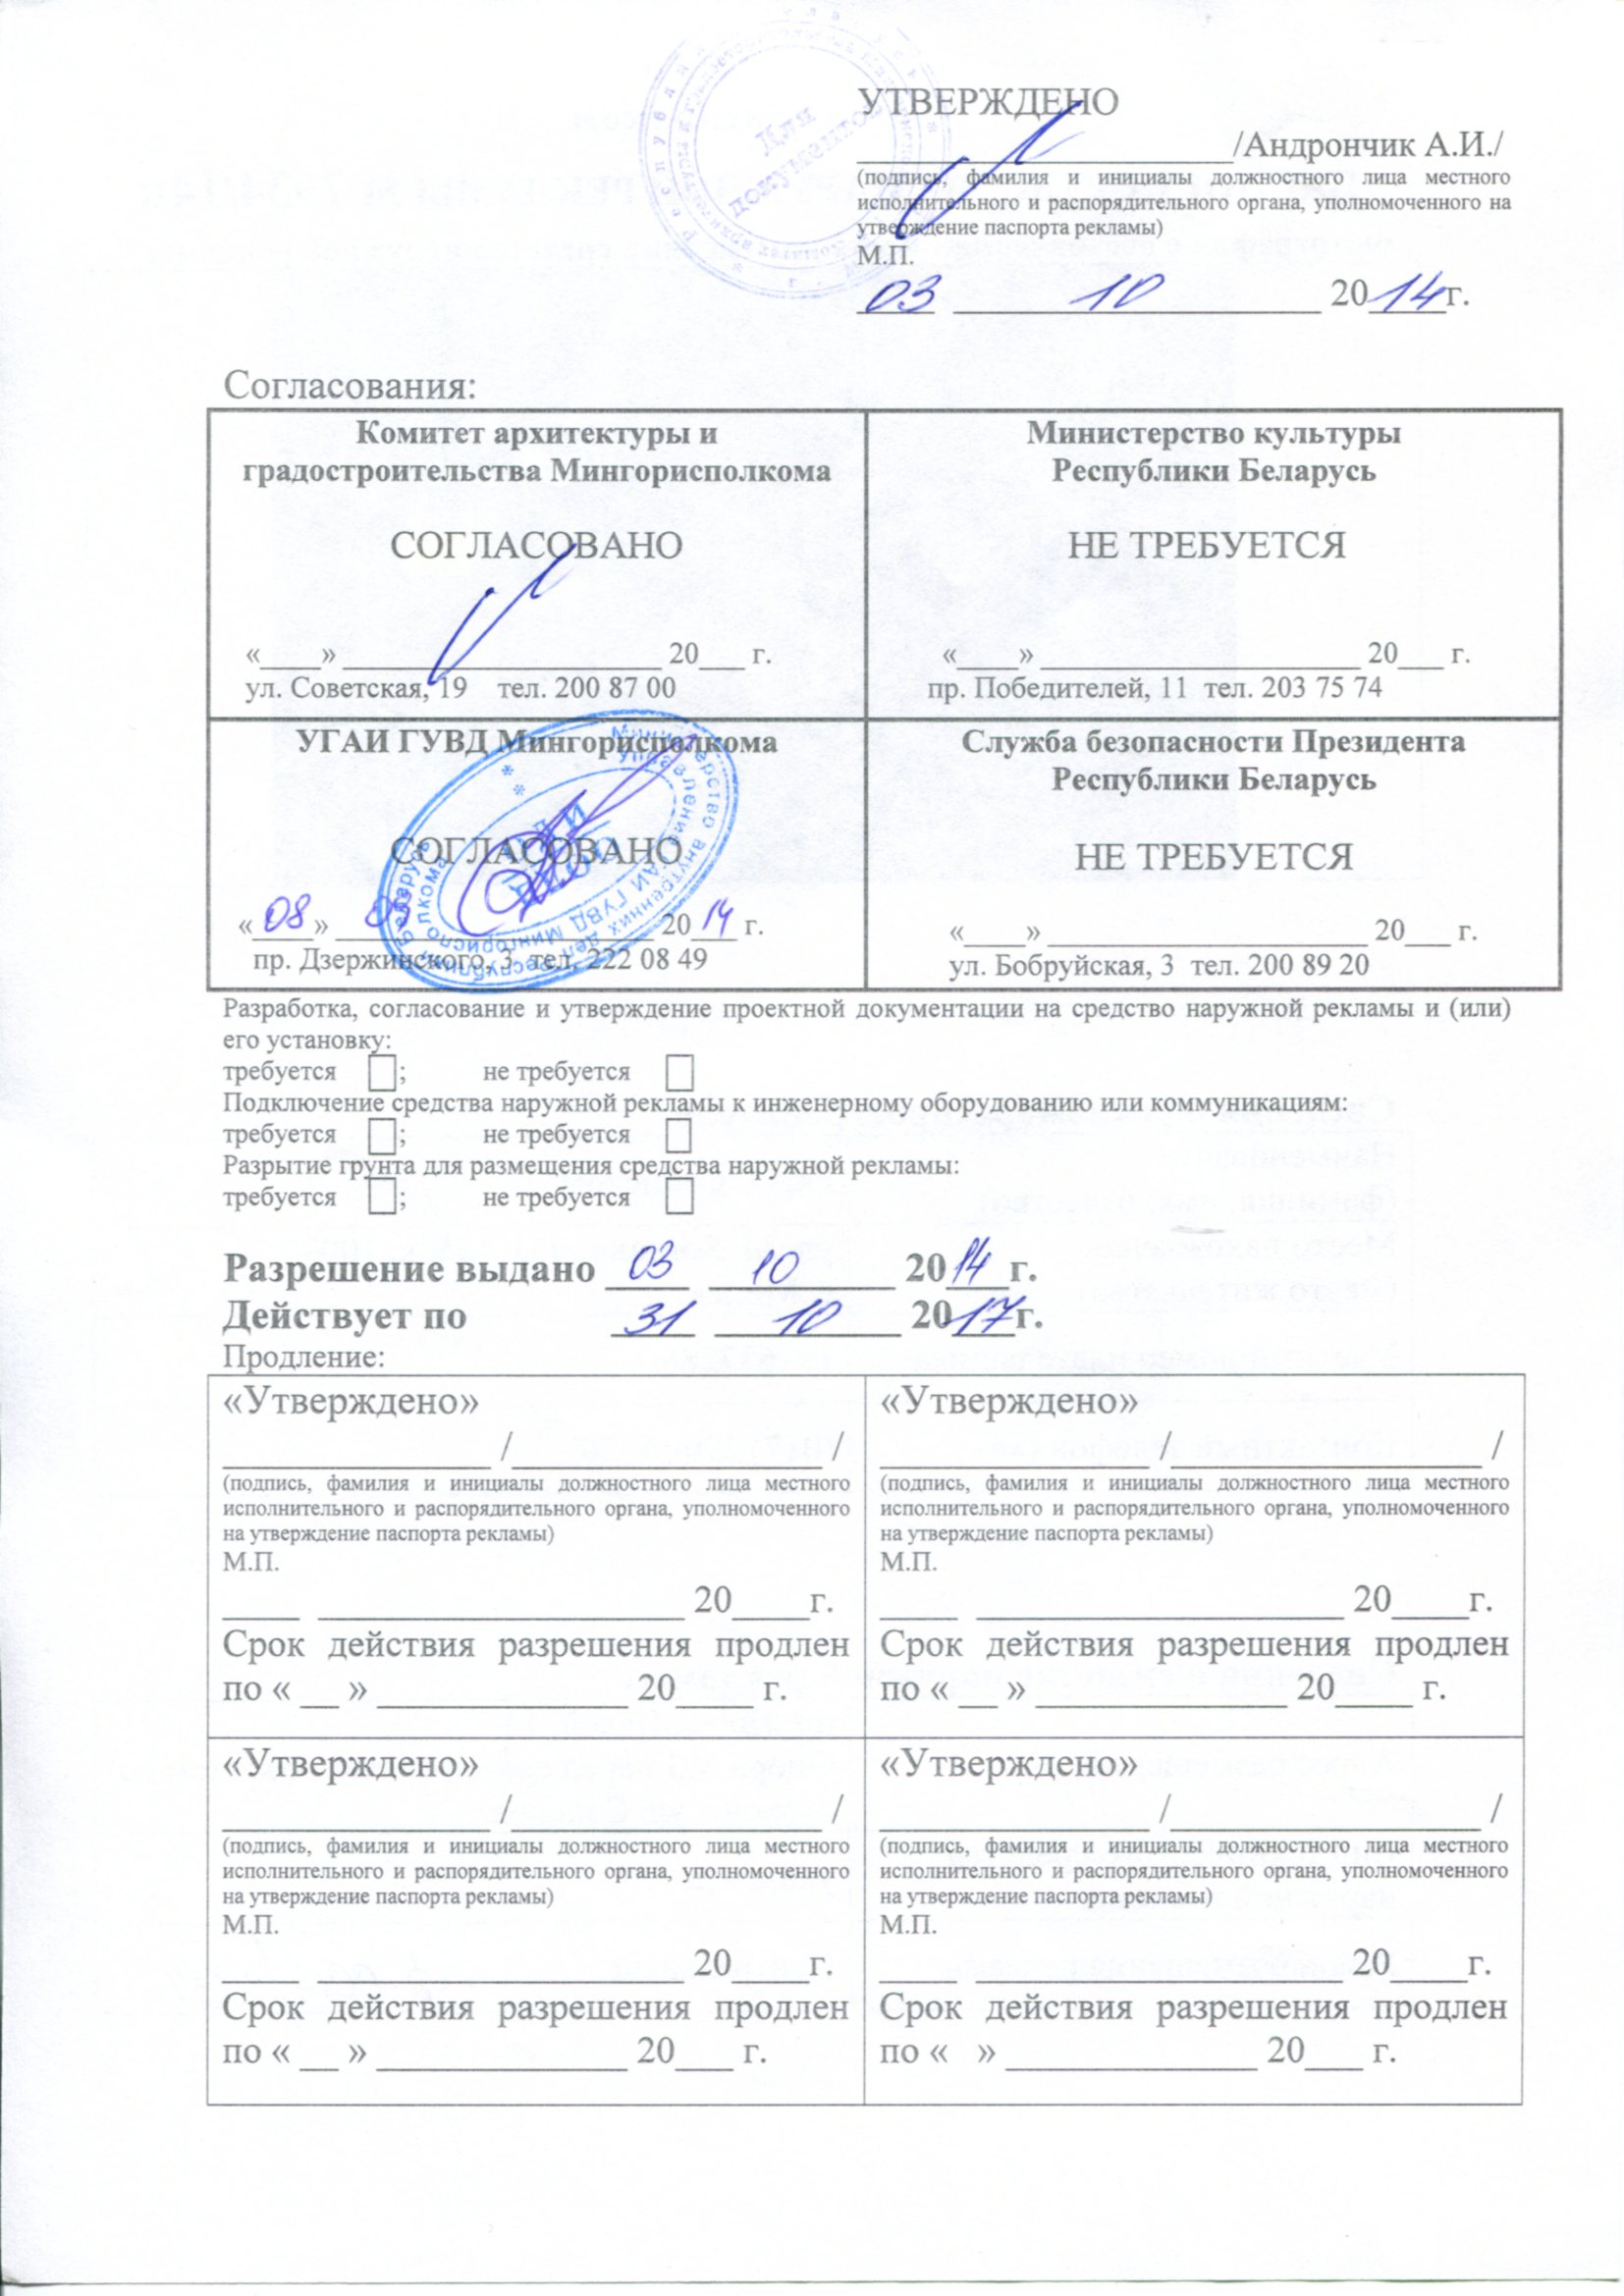 УТВЕРЖДЕНО
____________________/Андрончик А.И./
(подпись, фамилия и инициалы должностного лица местного
исполнительного и распорядительного органа, уполномоченного на
утверждение паспорта рекламы)
М.П.
03 10 2014г.
Для
документов
Согласования:
Комитет архитектуры и
градостроительства Мингорисполкома
СОГЛАСОВАНО
«____» _____________________ 20___ г.
ул. Советская, 19 тел. 200 87 00
Министерство культуры
Республики Беларусь
НЕ ТРЕБУЕТСЯ
«____» _____________________ 20___ г.
пр. Победителей, 11 тел. 203 75 74
УГАИ ГУВД Мингорисполкома
СОГЛАСОВАНО
«08» 2014 г.
пр. Дзержинского, 3 тел. 222 08 49
Министерство внутренних дел Республики Беларусь
Управление ГАИ ГУВД Мингорисполкома
Служба безопасности Президента
Республики Беларусь
НЕ ТРЕБУЕТСЯ
«____» _____________________ 20___ г.
ул. Бобруйская, 3 тел. 200 89 20
Разработка, согласование и утверждение проектной документации на средство наружной рекламы и (или)
его установку:
требуется ☐; не требуется ☐
Подключение средства наружной рекламы к инженерному оборудованию или коммуникациям:
требуется ☐; не требуется ☐
Разрытие грунта для размещения средства наружной рекламы:
требуется ☐; не требуется ☐
Разрешение выдано 03 10 2014г.
Действует по 31 10 2017г.
Продление:
«Утверждено»
______________ /________________ /
(подпись, фамилия и инициалы должностного лица местного
исполнительного и распорядительного органа, уполномоченного
на утверждение паспорта рекламы)
М.П.
____ ___________________ 20____г.
Срок действия разрешения продлен
по « __ » _____________ 20____ г.
«Утверждено»
______________ /________________ /
(подпись, фамилия и инициалы должностного лица местного
исполнительного и распорядительного органа, уполномоченного
на утверждение паспорта рекламы)
М.П.
____ ___________________ 20____г.
Срок действия разрешения продлен
по « __ » _____________ 20____ г.
«Утверждено»
______________ /________________ /
(подпись, фамилия и инициалы должностного лица местного
исполнительного и распорядительного органа, уполномоченного
на утверждение паспорта рекламы)
М.П.
____ ___________________ 20____г.
Срок действия разрешения продлен
по « __ » _____________ 20___ г.
«Утверждено»
______________ /________________ /
(подпись, фамилия и инициалы должностного лица местного
исполнительного и распорядительного органа, уполномоченного
на утверждение паспорта рекламы)
М.П.
____ ___________________ 20____г.
Срок действия разрешения продлен
по « » _____________ 20___ г.